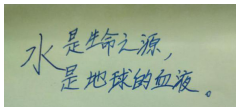 水是生命之源，
是地球的血液。